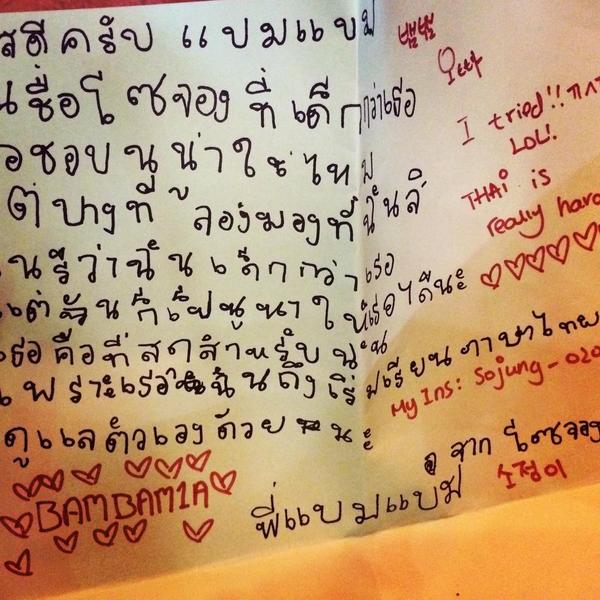 สดีครับ แบมแบม
뱀뱀
ชื่อโซจอง ที่ เด็กกว่าเธอ
I tried!! ㅋㅅㅋ
LOL!
อชอบ นูน่า ใช่ ไหม
THAI is
really hard
ต่ บางที ลองมองที่ ฉันสิ
♡♡♡♡♡♡
นรู้ว่าฉัน เด็กกว่า เธอ
แต่ ฉัน ก็ เป็นนูนาให้เธอได้นะ
เธอคือที่สุดสำหรับฉัน
เพราะเธอ ฉันถึงเริ่มเรียนภาษาไทย
My Ins: Sojung-020
ดูแลตัวเองด้วย นะ
จาก โซจอง
소정이
BAMBAM1A
พี่แบมแบม